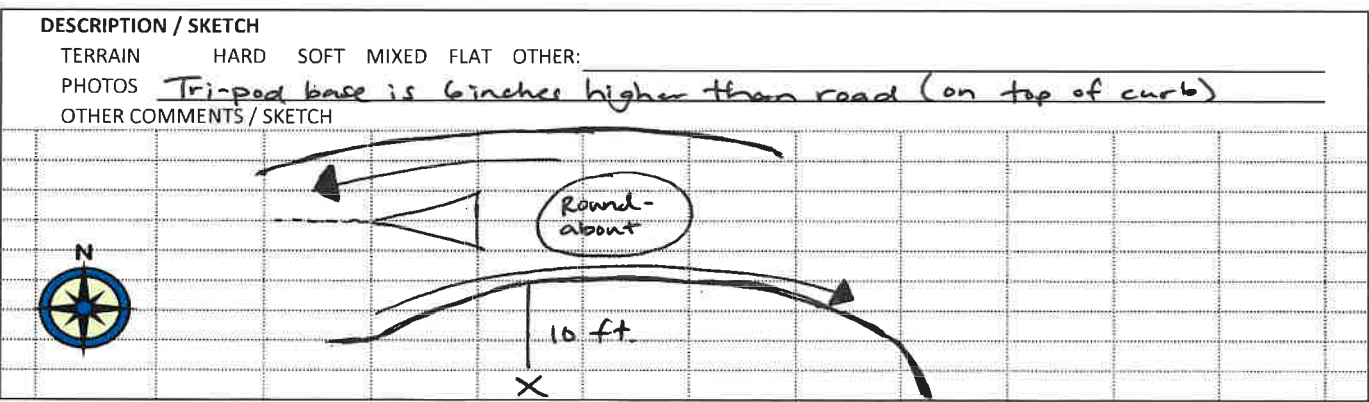 DESCRIPTION / SKETCH
TERRAIN HARD SOFT MIXED FLAT OTHER:
PHOTOS Tri-pod base is 6 inches higher than road (on top of curb)
OTHER COMMENTS / SKETCH
Round-
about
N
10 ft.
X